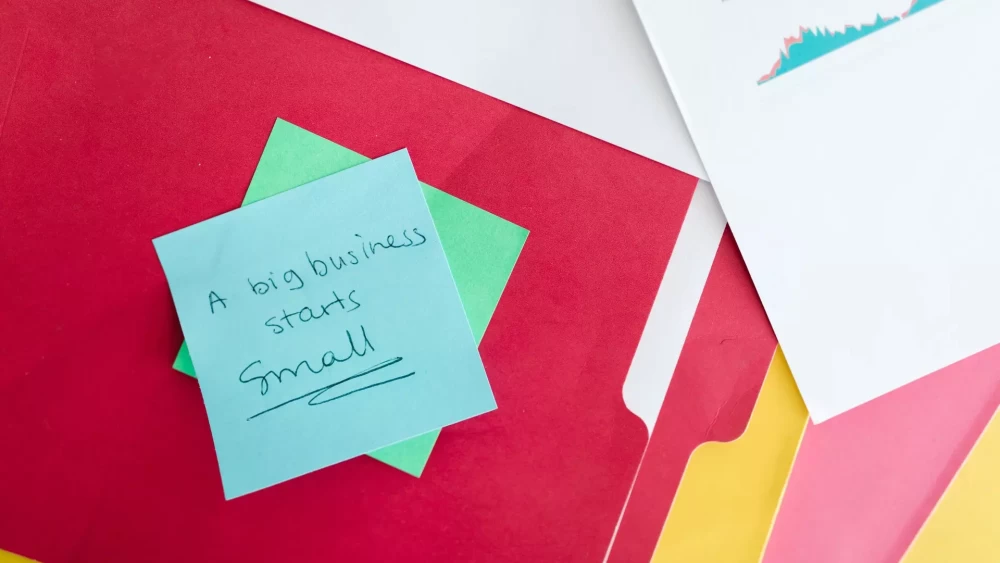 A big business
starts
Small